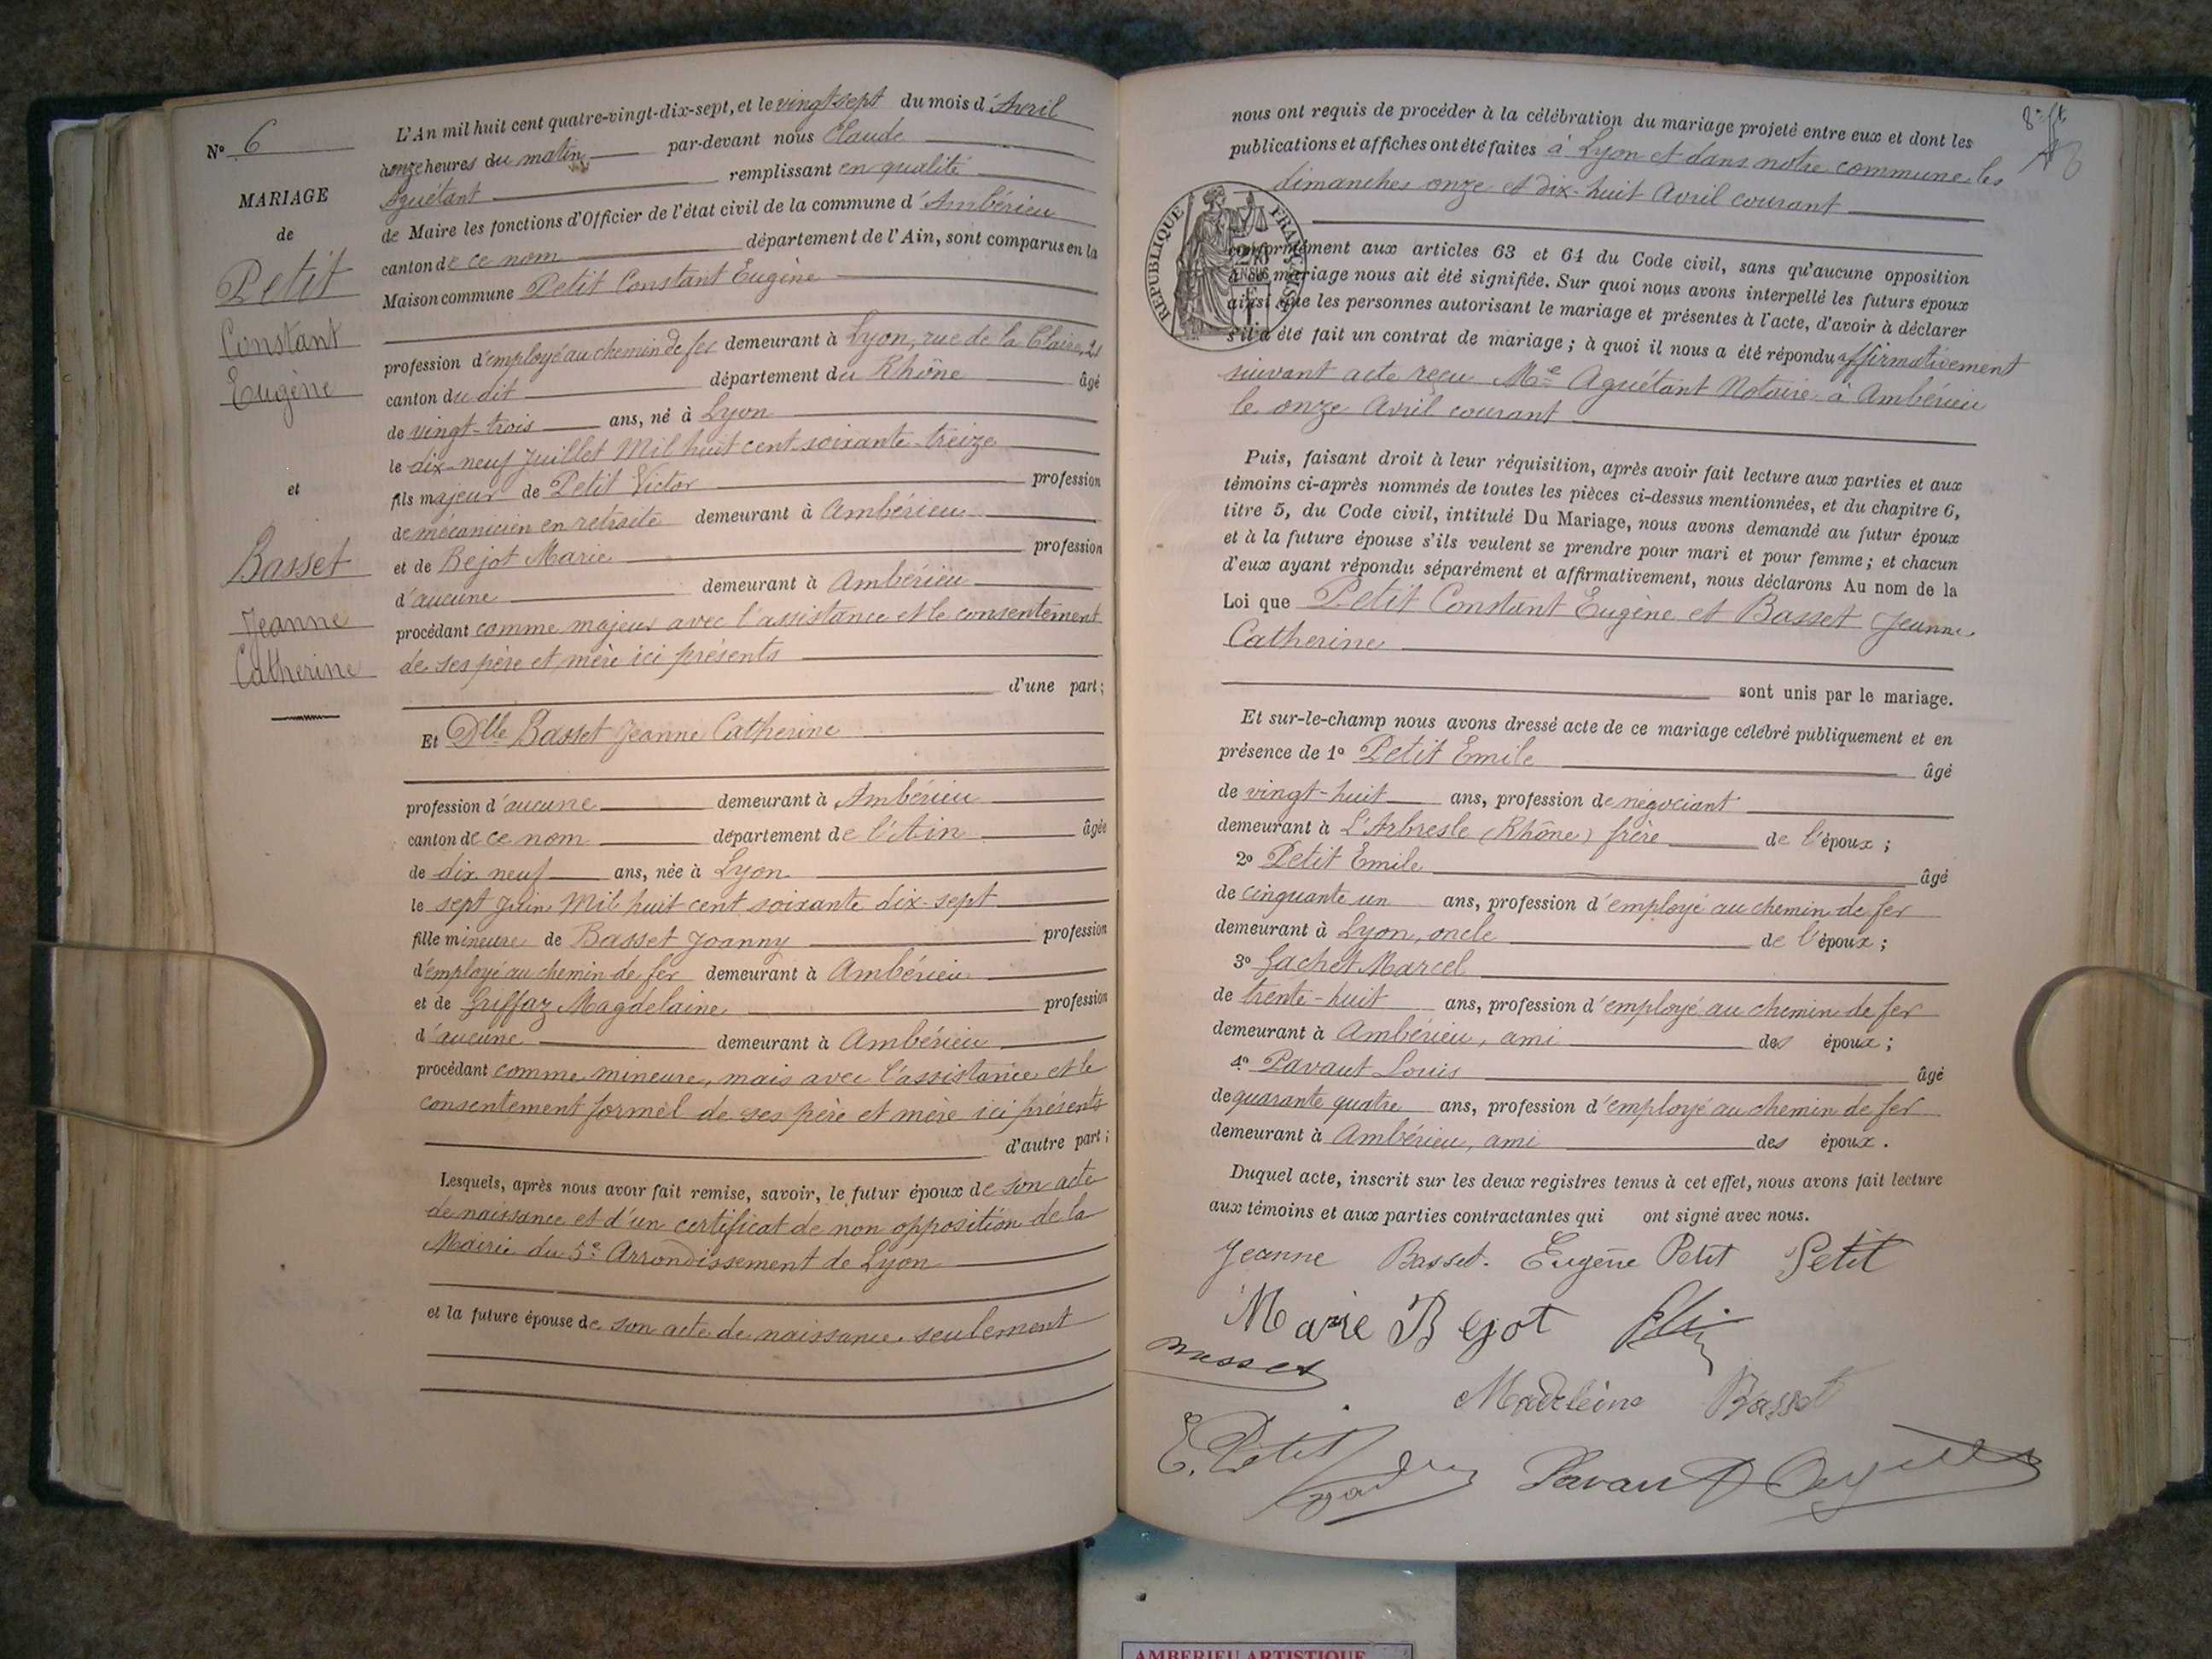 N° 6
MARIAGE
de
Petit
Constant
Eugène
et
Basset
Jeanne
Catherine
L'An mil huit cent quatre-vingt-dix-sept, et le vingt sept du mois d'Avril
à onze heures du matin par-devant nous Claude
Aguétant remplissant en qualité
de Maire les fonctions d'Officier de l'état civil de la commune d'Ambérieu
canton de ce nom département de l'Ain, sont comparus en la
Maison commune Petit Constant Eugène
profession d'employé au chemin de fer demeurant à Lyon, rue de la Claire, 21
canton du dit département du Rhône âgé
de vingt-trois ans, né à Lyon
le dix-neuf Juillet Mil huit cent soixante-treize
fils majeur de Petit Victor profession
de mécanicien en retraite demeurant à Ambérieu
et de Bejot Marie profession
d'aucune demeurant à Ambérieu
procédant comme majeur avec l'assistance et le consentement
de ses père et mère ici présents
d'une part;
Et Dlle Basset Jeanne Catherine
profession d'aucune demeurant à Ambérieu
canton de ce nom département de l'Ain âgée
de dix neuf ans, née à Lyon
le sept Juin Mil huit cent soixante dix-sept
fille mineure de Basset Joanny profession
d'employé au chemin de fer demeurant à Ambérieu
et de Griffaz Magdelaine profession
d'aucune demeurant à Ambérieu
procédant comme mineure, mais avec l'assistance et le
consentement formel de ses père et mère ici présents
d'autre part;
Lesquels, après nous avoir fait remise, savoir, le futur époux de son acte
de naissance et d'un certificat de non opposition de la
Mairie du 5e Arrondissement de Lyon
et la future épouse de son acte de naissance seulement
nous ont requis de procéder à la célébration du mariage projeté entre eux et dont les
publications et affiches ont été faites à Lyon et dans notre commune les
dimanches onze et dix-huit Avril courant
REPUBLIQUE FRANÇAISE
conformément aux articles 63 et 64 du Code civil, sans qu'aucune opposition
à ce mariage nous ait été signifiée. Sur quoi nous avons interpellé les futurs époux
ainsi que les personnes autorisant le mariage et présentes à l'acte, d'avoir à déclarer
s'il a été fait un contrat de mariage; à quoi il nous a été répondu affirmativement
suivant acte reçu Me Aguétant Notaire à Ambérieu
le onze Avril courant
Puis, faisant droit à leur réquisition, après avoir fait lecture aux parties et aux
témoins ci-après nommés de toutes les pièces ci-dessus mentionnées, et du chapitre 6,
titre 5, du Code civil, intitulé Du Mariage, nous avons demandé au futur époux
et à la future épouse s'ils veulent se prendre pour mari et pour femme; et chacun
d'eux ayant répondu séparément et affirmativement, nous déclarons Au nom de la
Loi que Petit Constant Eugène et Basset Jeanne
Catherine
sont unis par le mariage.
Et sur-le-champ nous avons dressé acte de ce mariage célébré publiquement et en
présence de 1° Petit Emile âgé
de vingt-huit ans, profession de négociant
demeurant à L'Arbresle (Rhône) frère de l'époux;
2° Petit Emile âgé
de cinquante un ans, profession d'employé au chemin de fer
demeurant à Lyon, oncle de l'époux;
3° Gachet Marcel
de trente-huit ans, profession d'employé au chemin de fer
demeurant à Ambérieu, ami des époux;
4° Pavaut Louis âgé
de quarante quatre ans, profession d'employé au chemin de fer
demeurant à Ambérieu, ami des époux.
Duquel acte, inscrit sur les deux registres tenus à cet effet, nous avons fait lecture
aux témoins et aux parties contractantes qui ont signé avec nous.
Jeanne Basset. Eugène Petit Petit
Marie Bejot
Basset
Madeleine Basset
E. Petit Pavaut
AMBERIEU ARTISTIQUE